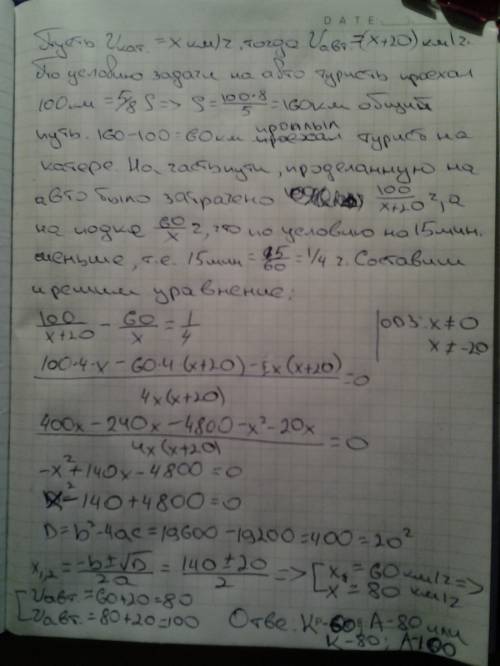 DATE
Пусть Vкат. = x км/ч, тогда Vавт. = (x+20) км/ч.
По условию задачи на авто турист проехал
100 км = 5/8 S => S = 100·8/5 = 160 км общий
путь. 160-100=60 км проплыл турист на
катере. На часть пути, проделанную на
авто было затрачено 100/(x+20) ч, а
на лодке 60/x ч, что по условию на 15 мин.
меньше, т.е. 15 мин = 15/60 = 1/4 ч. Составим
и решим уравнение:
100/(x+20) - 60/x = 1/4 ОДЗ: x ≠ 0
x ≠ -20
(100·4·x - 60·4(x+20) - x(x+20))/(4x(x+20)) = 0
(400x - 240x - 4800 - x² - 20x)/(4x(x+20)) = 0
-x² + 140x - 4800 = 0
x² - 140 + 4800 = 0
D = b² - 4ac = 19600 - 19200 = 400 = 20²
x1,2 = (-b ± √D)/2a = (140 ± 20)/2 => [ x1 = 60 км/ч =>
x = 80 км/ч
[ Vавт. = 60+20 = 80
Vавт. = 80+20 = 100 Ответ. К-60; А-80 или
К-80; А-100